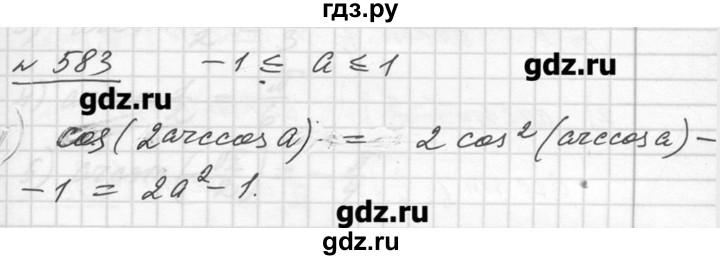 гдз.ру
№ 583 -1 ≤ a ≤ 1
gdz.ru gdz.ru
) cos(2arccos a) = 2 cos²(arccos a) -
- 1 = 2a² - 1.
gdz.ru
gdz.ru